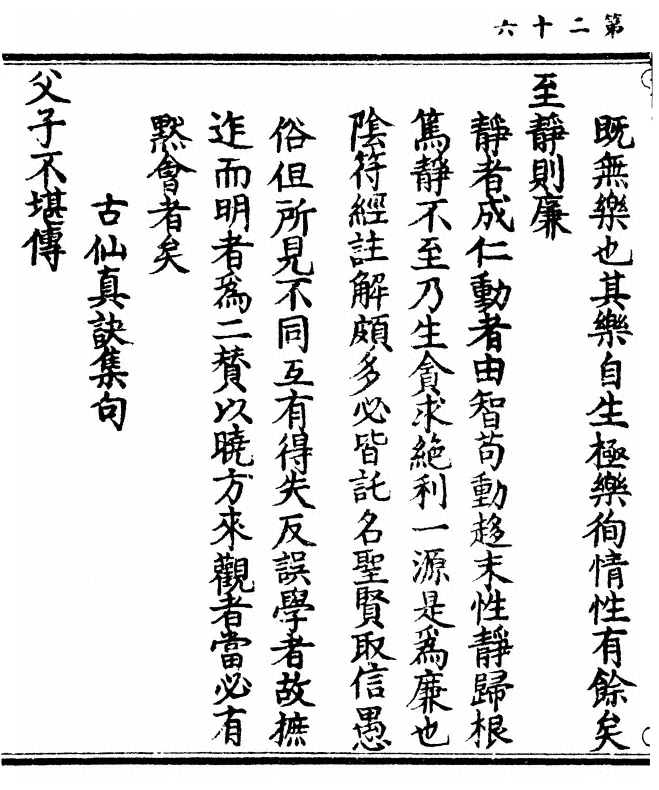 第二十六
既無樂也其樂自生極樂徇情性有餘矣
至靜則廉
靜者成仁動者由智苟動趍末性靜歸根
篤靜不至乃生貪求絶利一源是爲廉也
陰符經註解頗多必皆託名聖賢取信愚
俗但所見不同互有得失反誤學者故摭
迮而明者爲二賛以曉方來觀者當必有
黙會者矣
古仙真訣集句
父子不堪傳